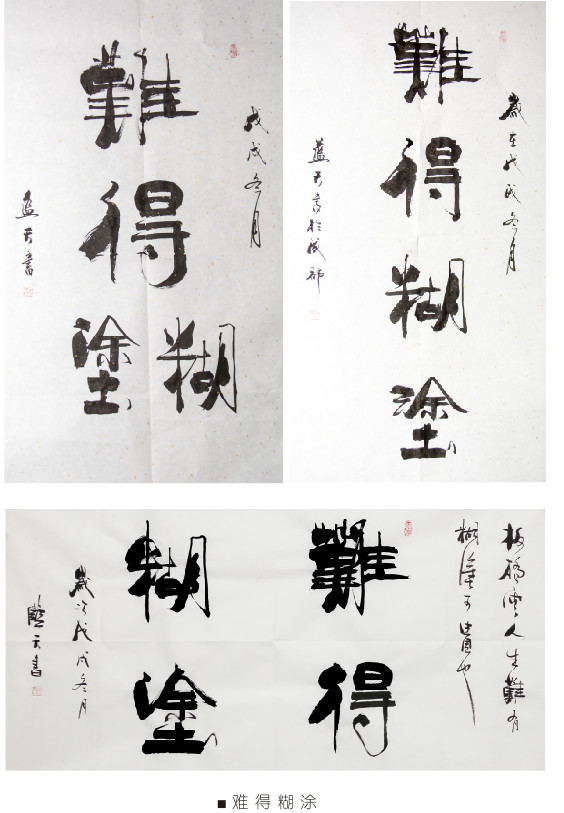 戊戌冬月
難得
糊塗
蓝天書
歲在戊戌冬月
難得糊塗
蓝天書於成都
板橋雲人生難有
糊塗可貴也
難得
糊塗
歲次戊戌冬月
藍天書
■ 难得糊涂